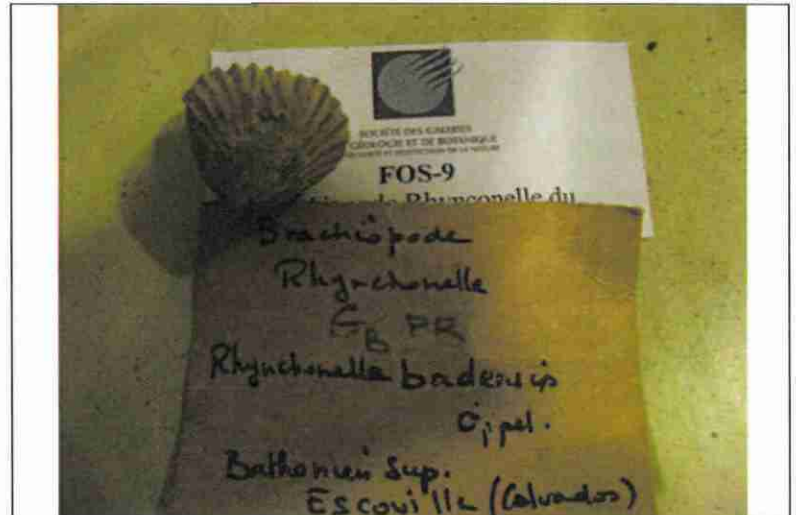 SOCIÉTÉ DES GALERIES
GÉOLOGIE ET DE BOTANIQUE
FOS-9
de Rhynconelle du
Brachiopode
Rhynchonelle
GB PR
Rhynchonella badensis
Oppel.
Bathonien Sup.
Escoville (Calvados)